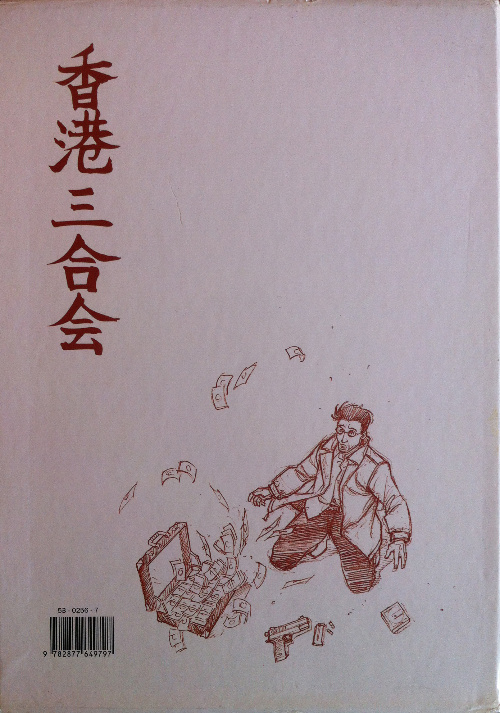 香港三合会
58-0266-7
9 782877 649797